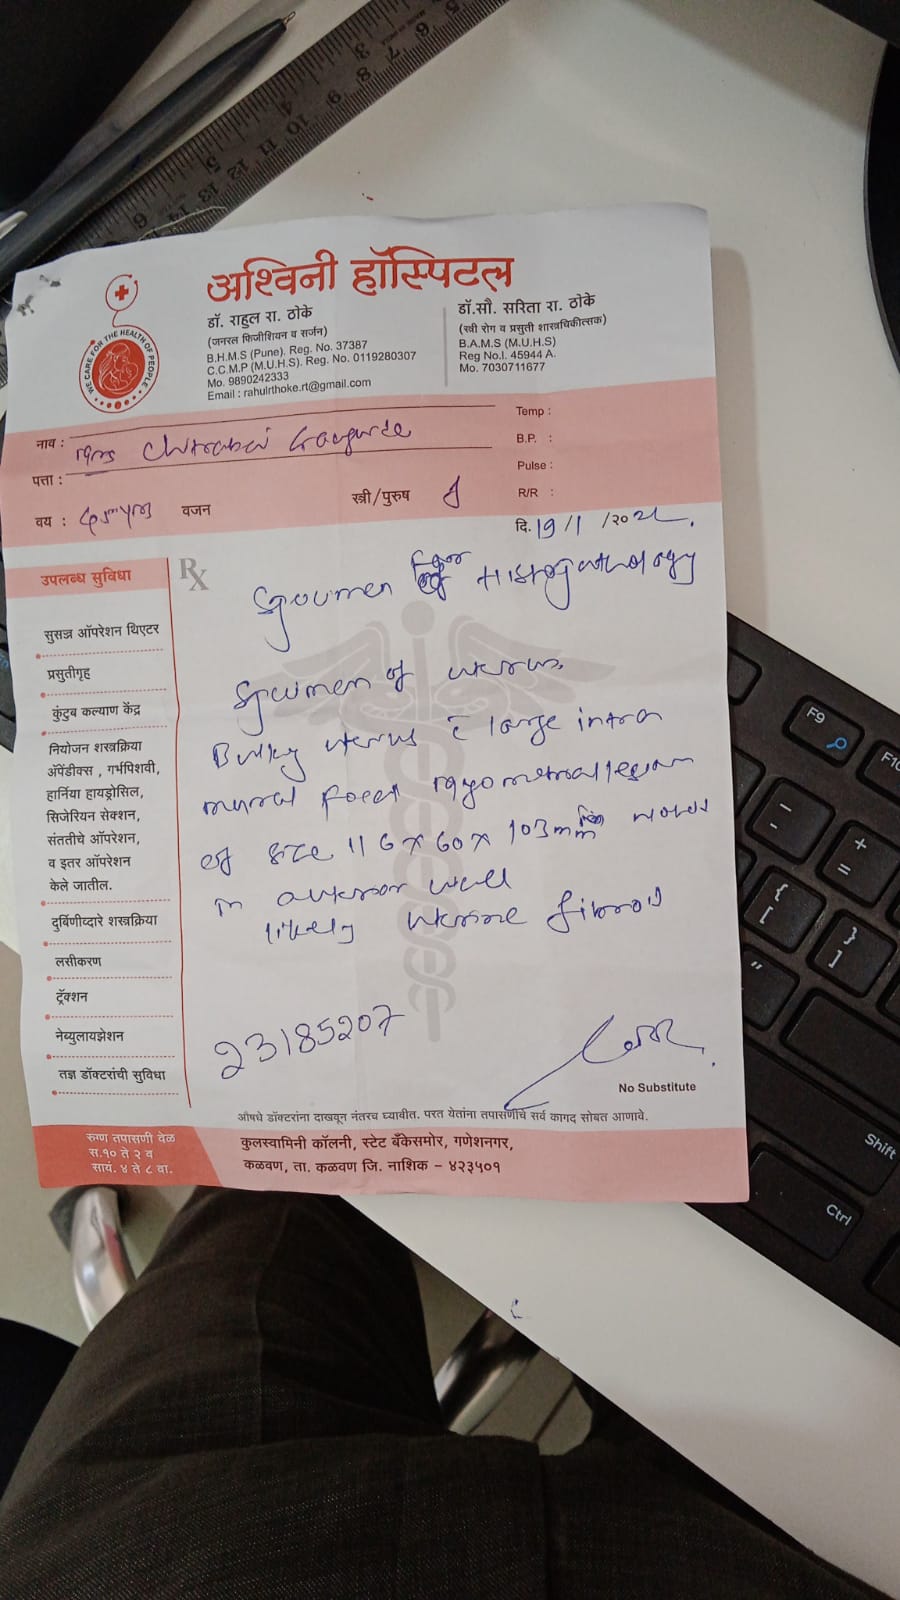 अश्विनी हॉस्पिटल
WE CARE FOR THE HEALTH OF PEOPLE
डॉ. राहुल रा. ठोके
(जनरल फिजीशियन व सर्जन)
B.H.M.S (Pune). Reg. No. 37387
C.C.M.P (M.U.H.S). Reg. No. 0119280307
Mo. 9890242333
Email : rahulrthoke.rt@gmail.com
डॉ.सौ. सरिता रा. ठोके
(स्त्री रोग व प्रसुती शास्त्रचिकीत्सक)
B.A.M.S (M.U.H.S)
Reg No.I. 45944 A.
Mo. 7030711677
नाव :
पत्ता :
वय : वजन स्त्री/पुरुष
Temp :
B.P. :
Pulse :
R/R :
दि. 19/1 /२०
उपलब्ध सुविधा
सुसज्ज ऑपरेशन थिएटर
प्रसुतीगृह
कुंटुब कल्याण केंद्र
नियोजन शस्त्रक्रिया
अ‍ॅपेंडीक्स , गर्भपिशवी,
हार्निया हायड्रोसिल,
सिजेरियन सेक्शन,
संततीचे ऑपरेशन,
व इतर ऑपरेशन
केले जातील.
दुर्बिणीव्दारे शस्त्रक्रिया
लसीकरण
ट्रॅक्शन
नेब्युलायझेशन
तज्ञ डॉक्टरांची सुविधा
Rx
Specimen for Histopathology
Specimen of uterus
Bulky uterus c̄ large intra
mural focal myometrial lesion
of size 116 x 60 x 103mm noted
in anterior wall
likely uterine fibroid
23185207
No Substitute
औषधे डॉक्टरांना दाखवून नंतरच घ्यावीत. परत येतांना तपासणीचे सर्व कागद सोबत आणावे.
रुग्ण तपासणी वेळ
स.१० ते २ व
सायं. ४ ते ८ वा.
कुलस्वामिनी कॉलनी, स्टेट बँकेसमोर, गणेशनगर,
कळवण, ता. कळवण जि. नाशिक - ४२३५०१
F9
F10
Shift
Ctrl